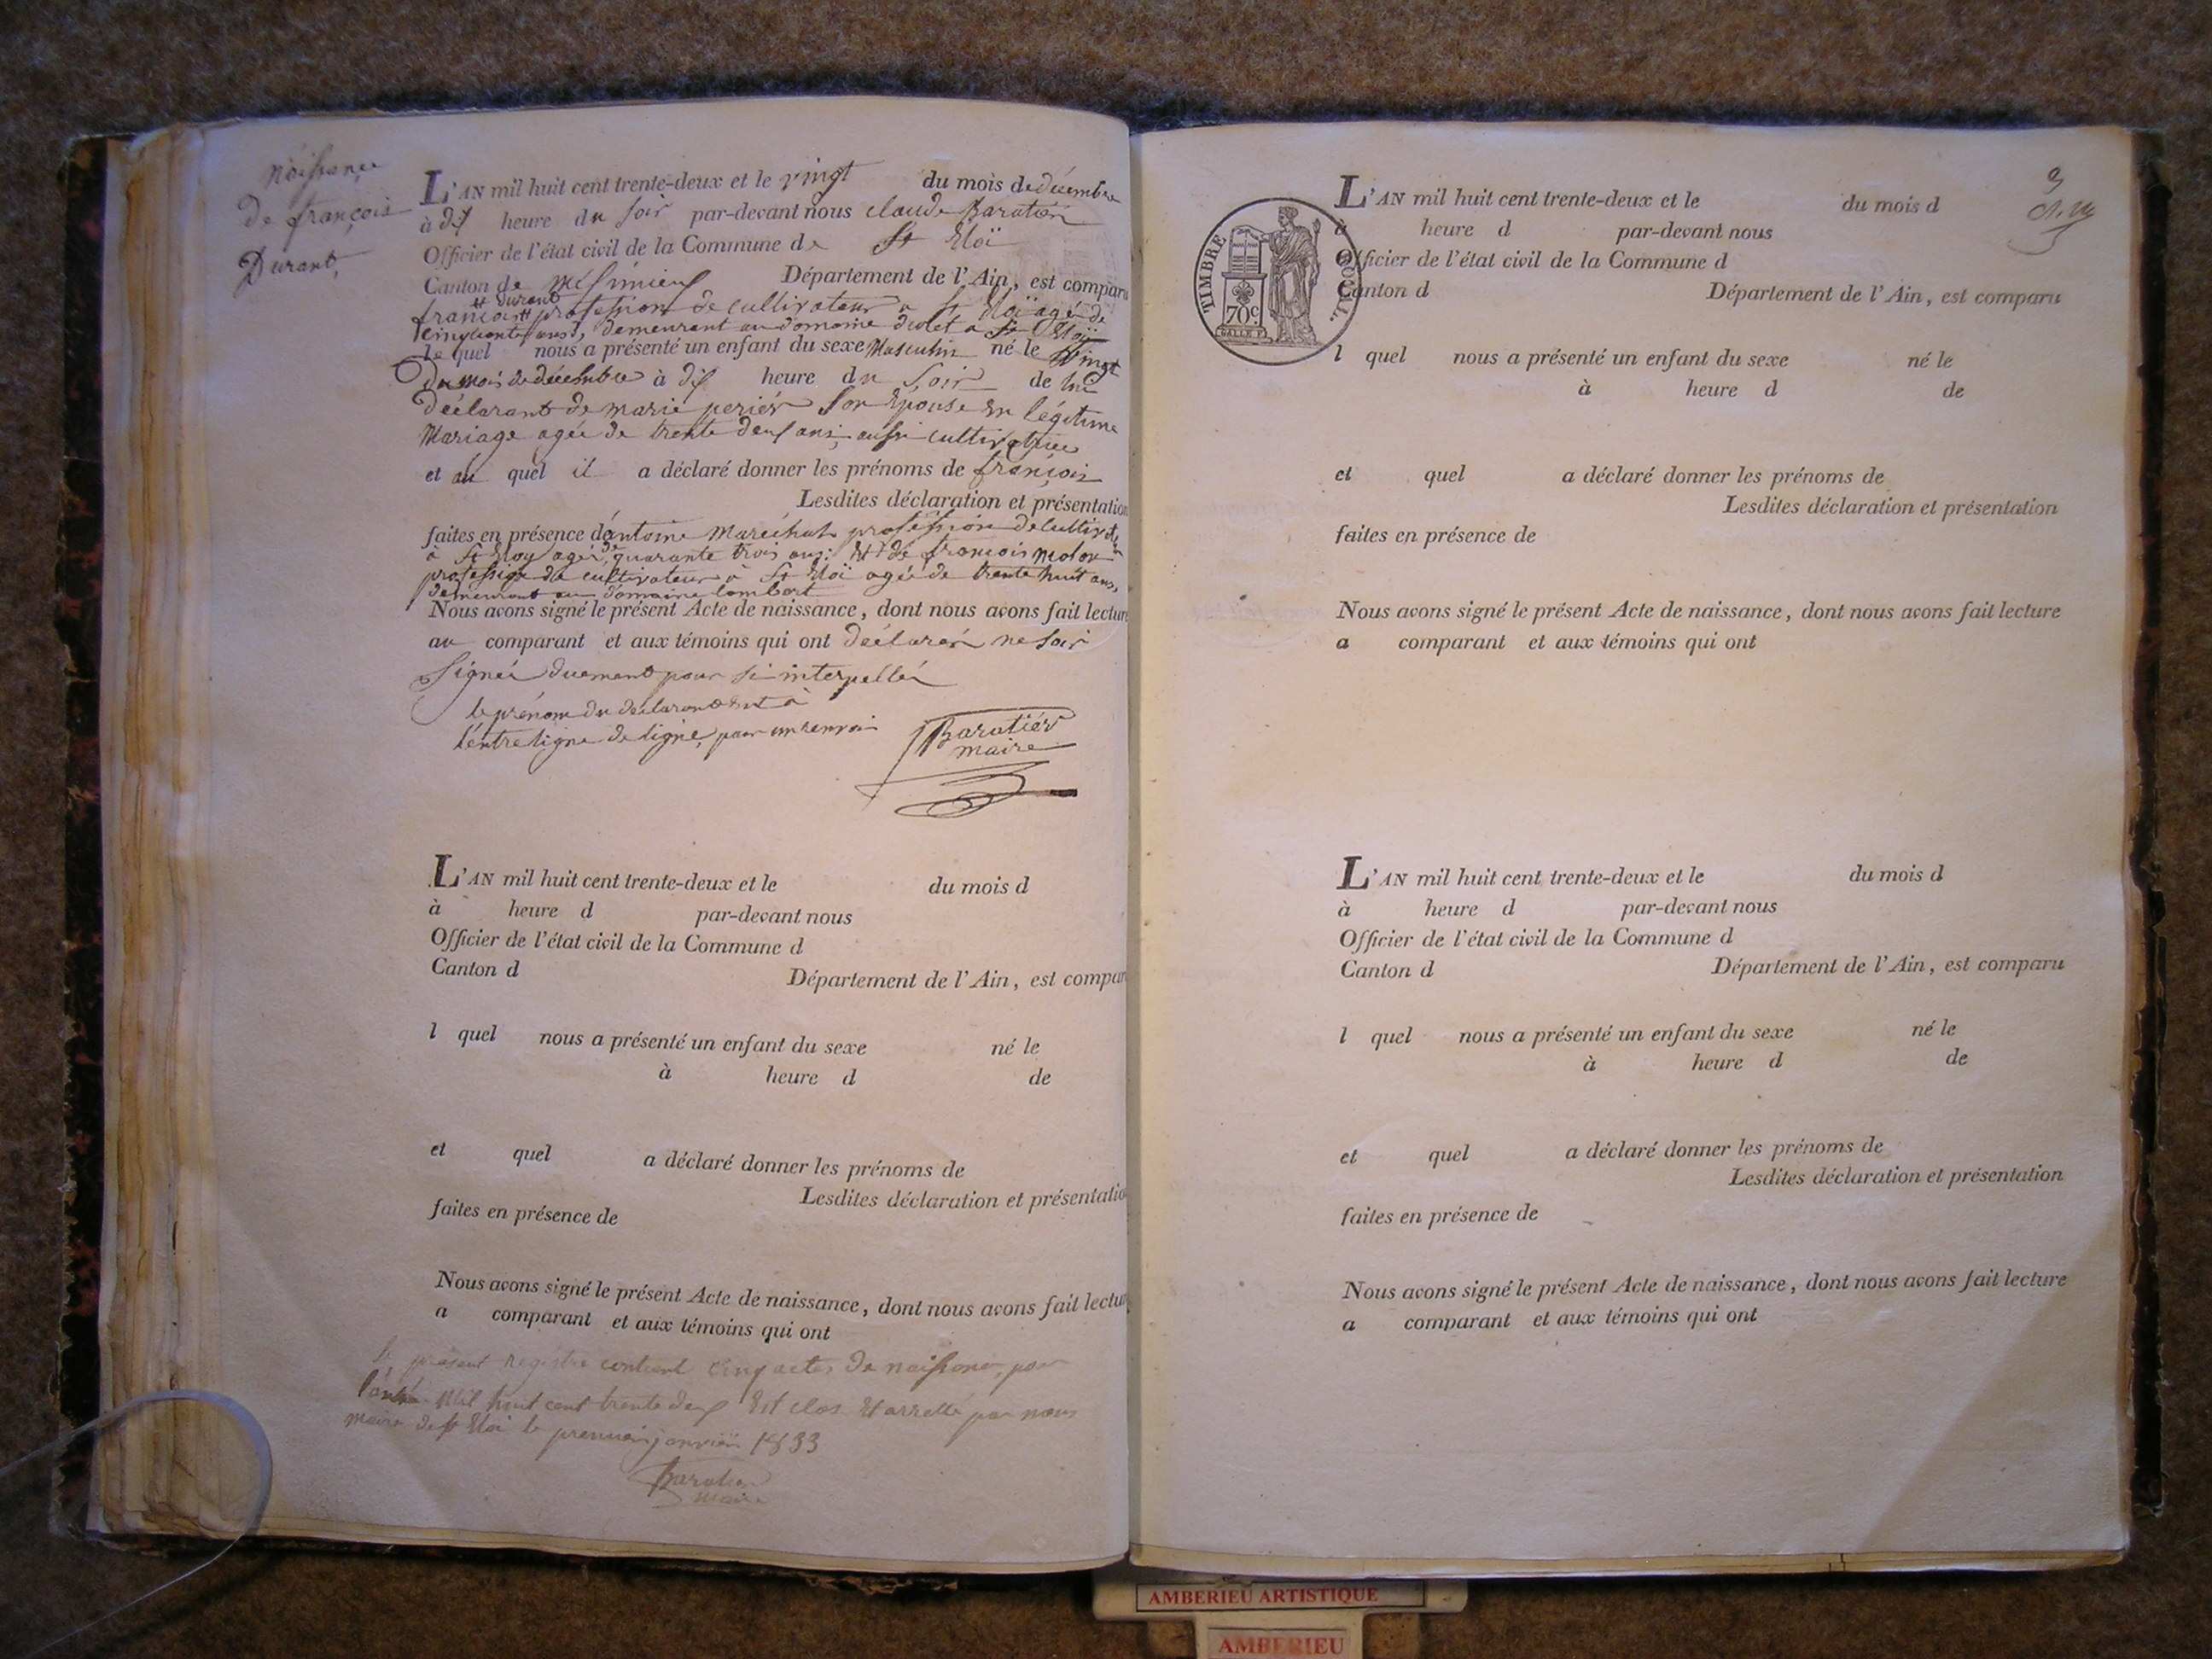 naissance
de françois
Durant,
L'AN mil huit cent trente-deux et le vingt du mois de décembre
à dix heure du soir par-devant nous claude Baratier
Officier de l'état civil de la Commune de St Eloï
Canton de Meximieux Département de l'Ain, est comparu
et durant
françois profession de cultivateur a St Eloï agé de
ans, demeurant au domaine a St Eloï
le quel nous a présenté un enfant du sexe Masculin né le vingt
du mois de décembre à dix heure du soir de lui
déclarant de marie perier son Epouse en légitime
Mariage agée de trente deux ans, aussi cultivatrice
et au quel il a déclaré donner les prénoms de françois
Lesdites déclaration et présentation
faites en présence d'antoine Maréchal profession de cultivateur
à St Eloy agé de quarante trois ans Et de françois
profession de cultivateur à St Eloï agé de trente huit ans,
demeurant au domaine lombert
Nous avons signé le présent Acte de naissance, dont nous avons fait lecture
au comparant et aux témoins qui ont déclarér ne savoir
Signér duement pour si interpellér
le prénom du déclarant est à
l'entreligne de ligne, pour un renvoi
Baratiér
maire
L'AN mil huit cent trente-deux et le du mois d
à heure d par-devant nous
Officier de l'état civil de la Commune d
Canton d Département de l'Ain, est compar
l quel nous a présenté un enfant du sexe né le
à heure d de
et quel a déclaré donner les prénoms de
Lesdites déclaration et présentatio
faites en présence de
Nous avons signé le présent Acte de naissance, dont nous avons fait lectur
a comparant et aux témoins qui ont
le présent registre contient cinq actes de naissance, pour
l'année Mil huit cent trente deux Est clos Et arretté par nous
maire de St Eloi le premier janvier 1833
Baratier
maire
3
L'AN mil huit cent trente-deux et le du mois d
à heure d par-devant nous
Officier de l'état civil de la Commune d
Canton d Département de l'Ain, est comparu
TIMBRE ROYAL.
70c
l quel nous a présenté un enfant du sexe né le
à heure d de
et quel a déclaré donner les prénoms de
Lesdites déclaration et présentation
faites en présence de
Nous avons signé le présent Acte de naissance, dont nous avons fait lecture
a comparant et aux témoins qui ont
L'AN mil huit cent trente-deux et le du mois d
à heure d par-devant nous
Officier de l'état civil de la Commune d
Canton d Département de l'Ain, est comparu
l quel nous a présenté un enfant du sexe né le
à heure d de
et quel a déclaré donner les prénoms de
Lesdites déclaration et présentation
faites en présence de
Nous avons signé le présent Acte de naissance, dont nous avons fait lecture
a comparant et aux témoins qui ont
AMBERIEU ARTISTIQUE
AMBERIEU